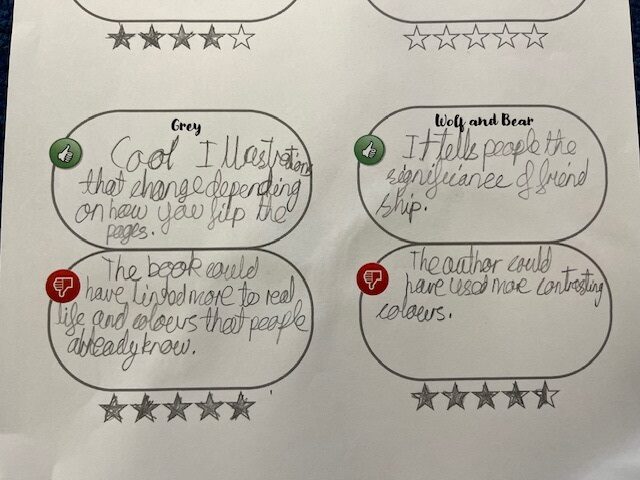 Grey
Cool Illustrations
that change depending
on how you flip the
pages.
The book could
have linked more to real
life and colours that people
already know.
Wolf and Bear
It tells people the
significance of friend
ship.
The author could
have used more contrasting
colours.